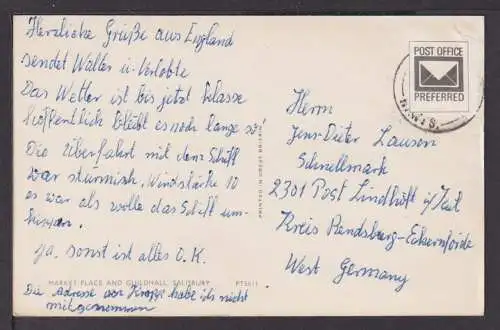 Herzliche Grüße aus England
sendet Walter u. Verlobte
Das Wetter ist bis jetzt klasse
hoffentlich bleibt es noch lange so!
Die Überfahrt mit dem Schiff
war stürmisch, Windstärke 10
es war als wolle das Schiff um-
kippen.
Ja, sonst ist alles O.K.
MARKET PLACE AND GUILDHALL, SALISBURY PT3611
Die Adresse von habe ich nicht
mitgenommen
PRINTED IN GREAT BRITAIN
POST OFFICE
PREFERRED
Herrn
Jens-Dieter Lausen
Schnellmark
2301 Post Lindhöft ü/Kiel
Kreis Rendsburg-Eckernförde
West Germany